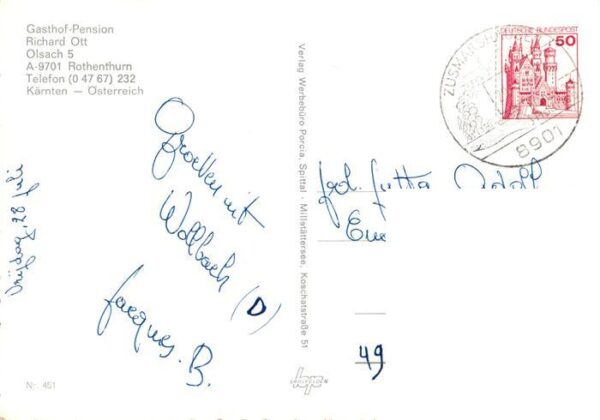 Gasthof-Pension
Richard Ott
Olsach 5
A-9701 Rothenthurn
Telefon (0 47 67) 232
Kärnten — Österreich
Vrijdag, 28 Juli
Groeten uit
(D)
Jacques. B.
Nr. 451
Verlag Werbebüro Porcia, Spittal - Millstättersee, Koschatstraße 51
DEUTSCHE BUNDESPOST
50
8901
49